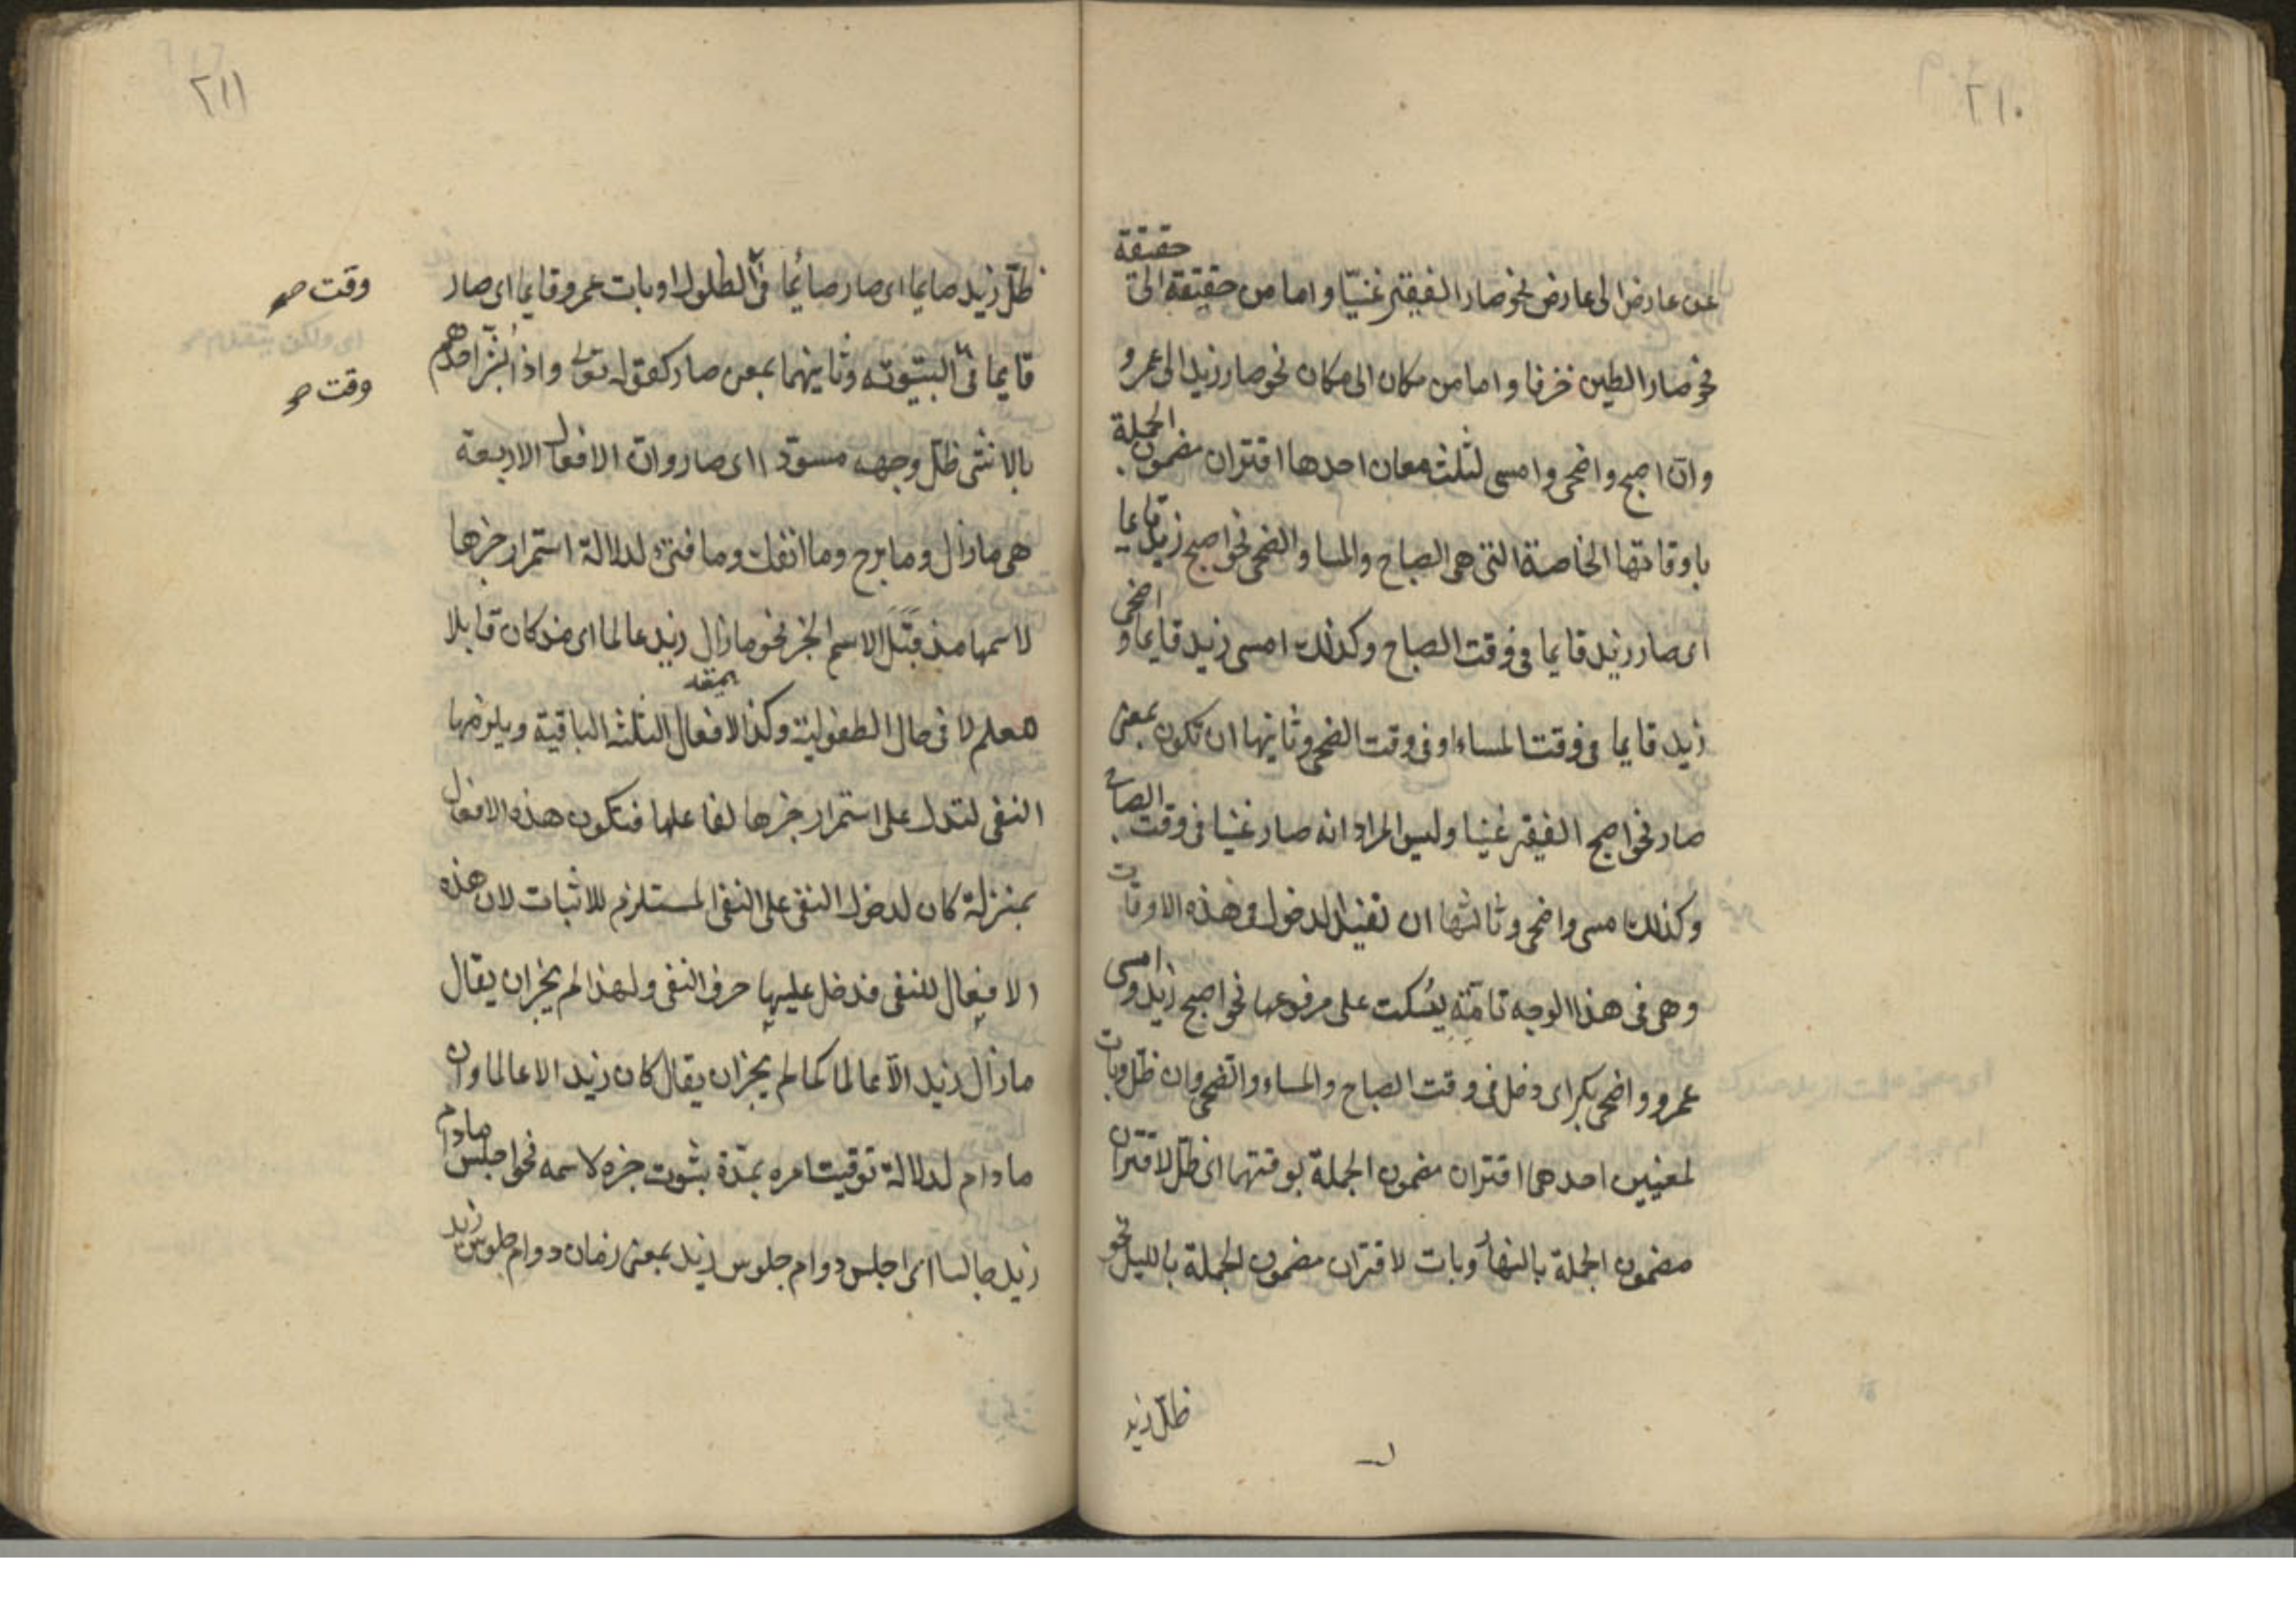 ٢١٠
من عارض الى عارض نحو صار الفقير غنيّا واما من حقيقة الى حقيقة
نحو صار الطين خزفا واما من مكان الى مكان نحو صار زيد الى عمرو
وانّ اصبح واضحى وامسى لثلث معان احدها اقتران مضمون الجملة
باوقاتها الخاصة التى هى الصباح والمسا والضحى نحو اصبح زيد قايما
اى صار زيد قايما فى وقت الصباح وكذلك امسى زيد قايما واضحى
زيد قايما فى وقت المساء او فى وقت الضحى وثانيها ان تكون بمعنى
صار نحو اصبح الفقير غنيا وليس المراد انه صار غنيا فى وقت الصباح
وكذلك امسى واضحى وثالثها ان تفيد الدخول فى هذه الاوقات
وهى فى هذا الوجه تامّة يسكت على مرفوعها نحو اصبح زيد وامسى
عمرو واضحى بكر اى دخل فى وقت الصباح والمساء والضحى وان ظلّ وبات
لمعنيين احدهما اقتران مضمون الجملة بوقتهما اى ظلّ لاقتران
مضمون الجملة بالنهار وبات لاقتران مضمون الجملة بالليل نحو
ظلّ زيد
٢١١
ظلّ زيد صايما اى صار صائما فى الظلول او بات عمرو قايما اى صار
وقت صح
قايما فى البيتوته وثانيهما بمعنى صار كقوله تعالى واذا بُشّر احدهم
وقت صح
بالانثى ظلّ وجهه مسودّا اى صار وانّ الافعال الاربعة
هى مازال وما برح وما انفك وما فتئ لدلالة استمرار خبرها
لاسمها مذ قَبِلَ الاسم الخبر نحو مازال زيد عالما اى مذ كان قابلا
للعلم لا فى حال الطفولية وكذا الافعال الثلثه الباقية ويلزمها
النفى لتدل على استمرار خبرها لفاعلها فتكون هذه الافعال
بمنزلة كان لدخول النفى على النفى المستلزم للاثبات لان هذه
الافعال للنفى فدخل عليها حرف النفى ولهذا لم يجز ان يقال
مازال زيد الّا عالما كما لم يجز ان يقال كان زيد الا عالما وان
مادام لدلالة توقيت امره بمدّة بثبوت خبره لاسمه نحو اجلس مادام
زيد جالسا اى اجلس دوام جلوس زيد بمعنى زمان دوام جلوس زيد